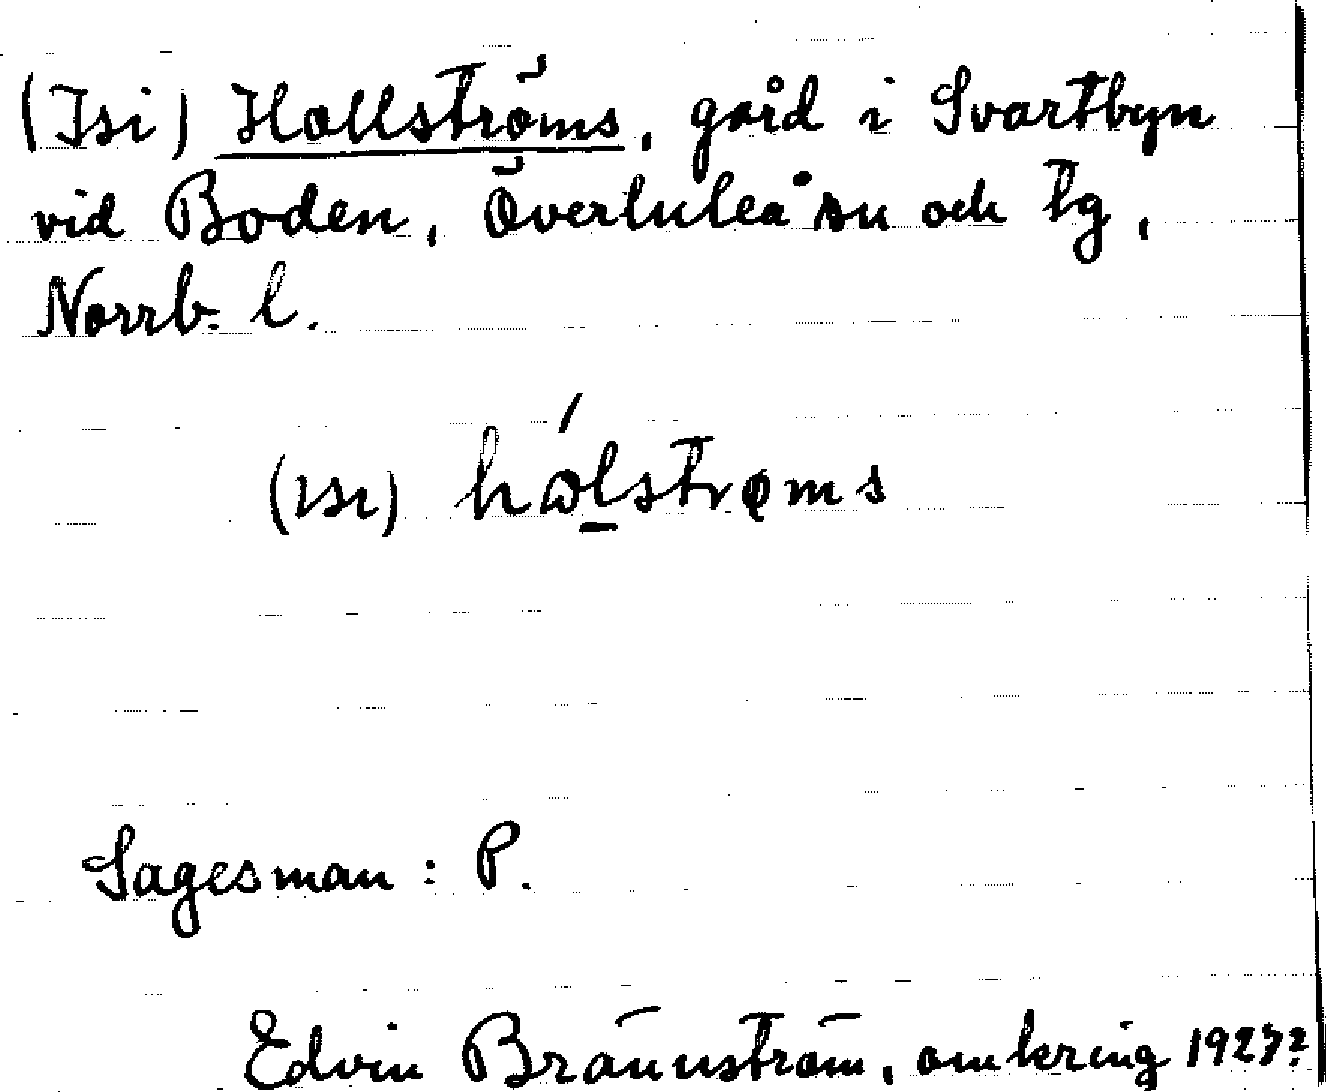 (Isi) Hallströms, gård i Svartbyn
vid Boden, Överluleå sn och tg,
Norrb. l.
(ısı) hálstrøms
Sagesman: P.
Edvin Brännström, omkring 1927?